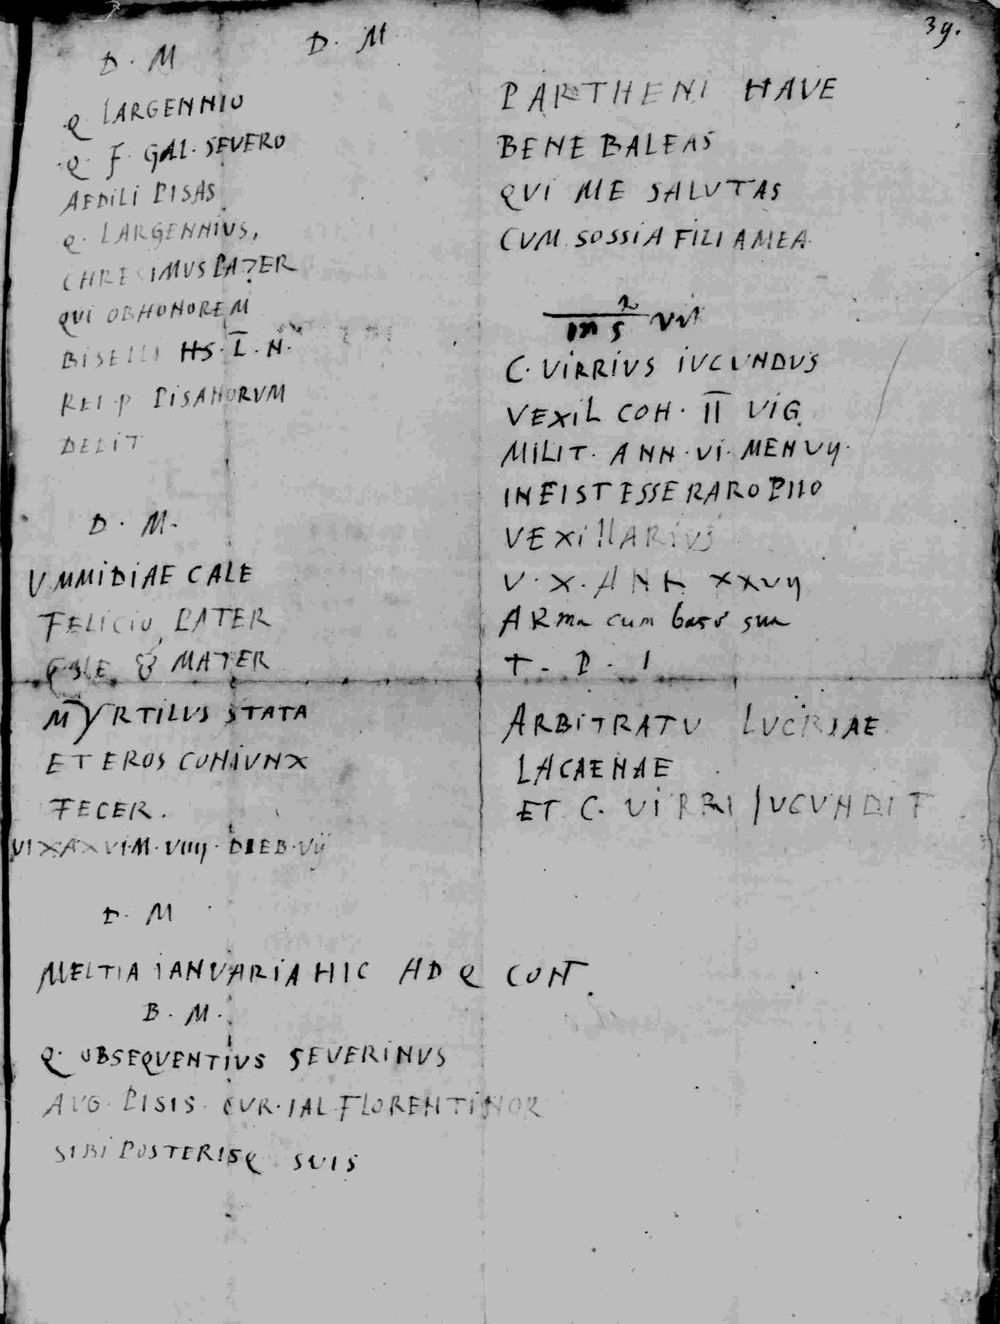 39.
D. M
D. M
Q LARGENNIO
Q. F. GAL. SEVERO
AEDILI PISAS
Q. LARGENNIUS,
CHRESIMUS PATER
QUI OBHONOREM
BISELLI HS. I. N.
REI P PISANORVM
DEDIT
D. M.
VMMIDIAE CALE
FELICIO PATER
MATER
MYRTILUS STATA
ET EROS CONIVNX
FECER.
VIXAXVI.M.VIIIJ.DIEB.VIJ
D. M
MELTIA IANVARIA HIC AD Q CONT.
B. M.
Q. OBSEQUENTIVS SEVERINVS
AVG. PISIS CVR.IAL FLORENTINOR
SIBI POSTERISQ SUIS
PARTHENI HAVE
BENE BALEAS
QVI ME SALUTAS
CVM SOSSIA FILIAMEA.
C. VIRRIVS IUCUNDUS
VEXIL COH. II VIG.
MILIT. ANN.VI.MENVIJ.
INEISTESSERAROPIIO
VEXILLARIVS
V. X. ANN XXVIJ
ARma cum base sua
T. P. I
ARBITRATU LUCRIAE
LACAENAE
ET C. VIRRI JUCUNDI F